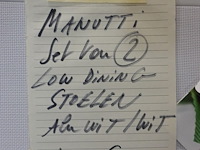 MANUTTi
Set Van 2
LOW DINING
STOELEN
Alu WiT/WiT